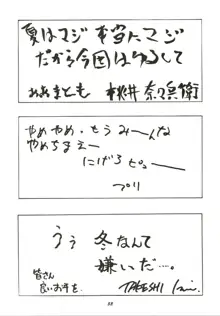 夏はマジ本当にマジ
だから今回はゆるして
ああまとも 桃井奈々兵衛
やめやめ・もうみーんな
やめちまえー
にげろピューー
プリ
うぅ 冬なんて
嫌いだ…。
皆さん
良いお年を。 TAKESHI
88